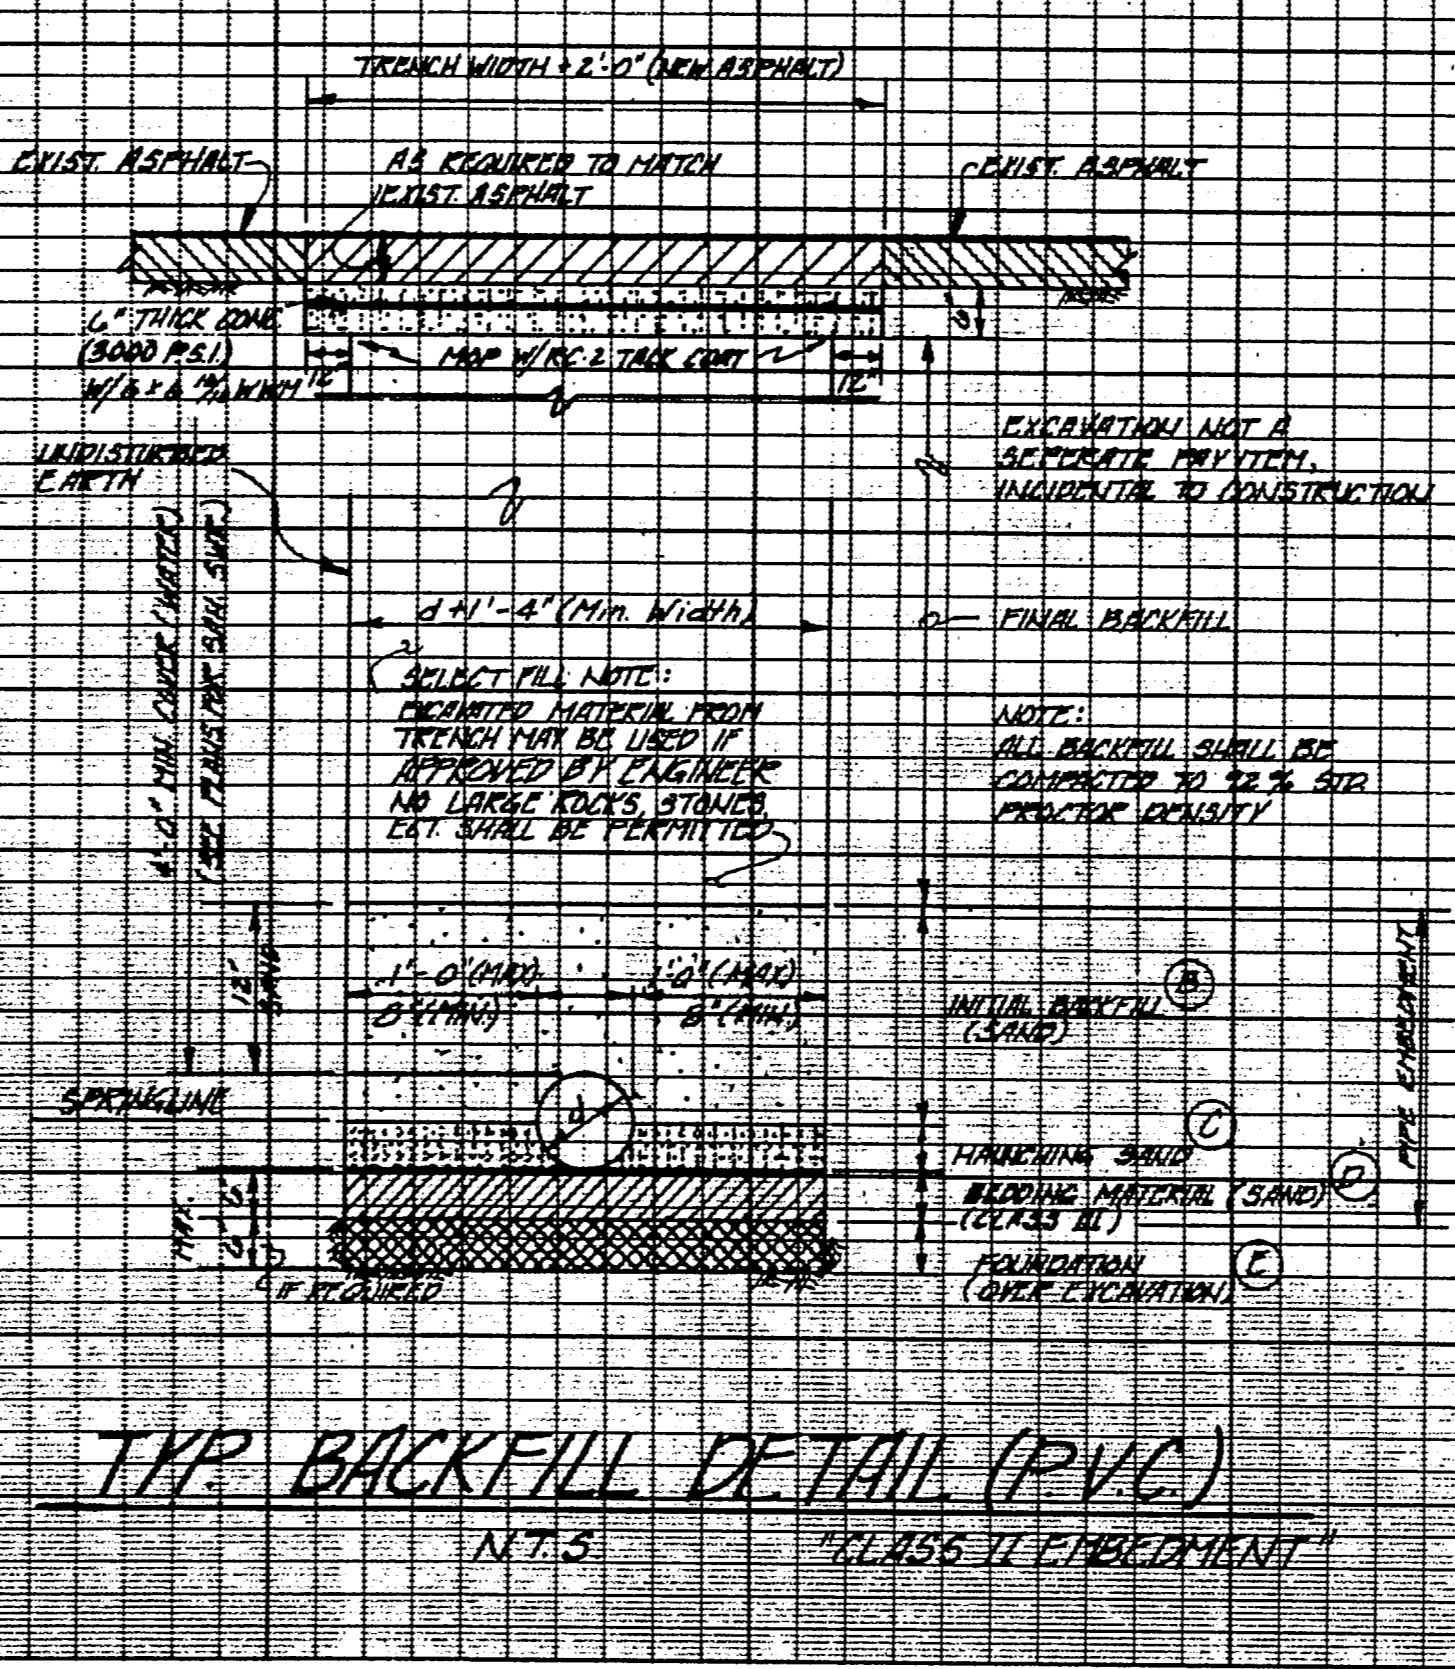 TRENCH WIDTH + 2'-0" (NEW ASPHALT)
EXIST. ASPHALT
AS REQUIRED TO MATCH
EXIST. ASPHALT
EXIST. ASPHALT
6" THICK CONC
(3000 P.S.I.)
W/ 6 x 6 10/10 WWM
MOP W/ RC-2 TACK COAT
12"
12"
6"
UNDISTURBED
EARTH
EXCAVATION NOT A
SEPERATE PAY ITEM,
INCIDENTAL TO CONSTRUCTION
4'-0" MIN. COVER (WATER)
(SEE PLANS FOR SAN. SWR.)
d + 1'-4" (Min. Width)
FINAL BACKFILL
SELECT FILL NOTE:
EXCAVATED MATERIAL FROM
TRENCH MAY BE USED IF
APPROVED BY ENGINEER
NO LARGE ROCKS, STONES,
ECT. SHALL BE PERMITTED
NOTE:
ALL BACKFILL SHALL BE
COMPACTED TO 92% STD.
PROCTOR DENSITY
12"
SAND
1'-0" (MAX)
8" (MIN.)
1'-0" (MAX)
8" (MIN.)
INITIAL BACKFILL B
(SAND)
PIPE EMBEDMENT
SPRINGLINE
d
HAUNCHING SAND C
BEDDING MATERIAL (SAND) D
(CLASS III)
MAX.
6"
6"
IF REQUIRED
FOUNDATION E
(OVER EXCAVATION)
TYP. BACKFILL DETAIL (P.V.C.)
N.T.S
"CLASS II EMBEDMENT"